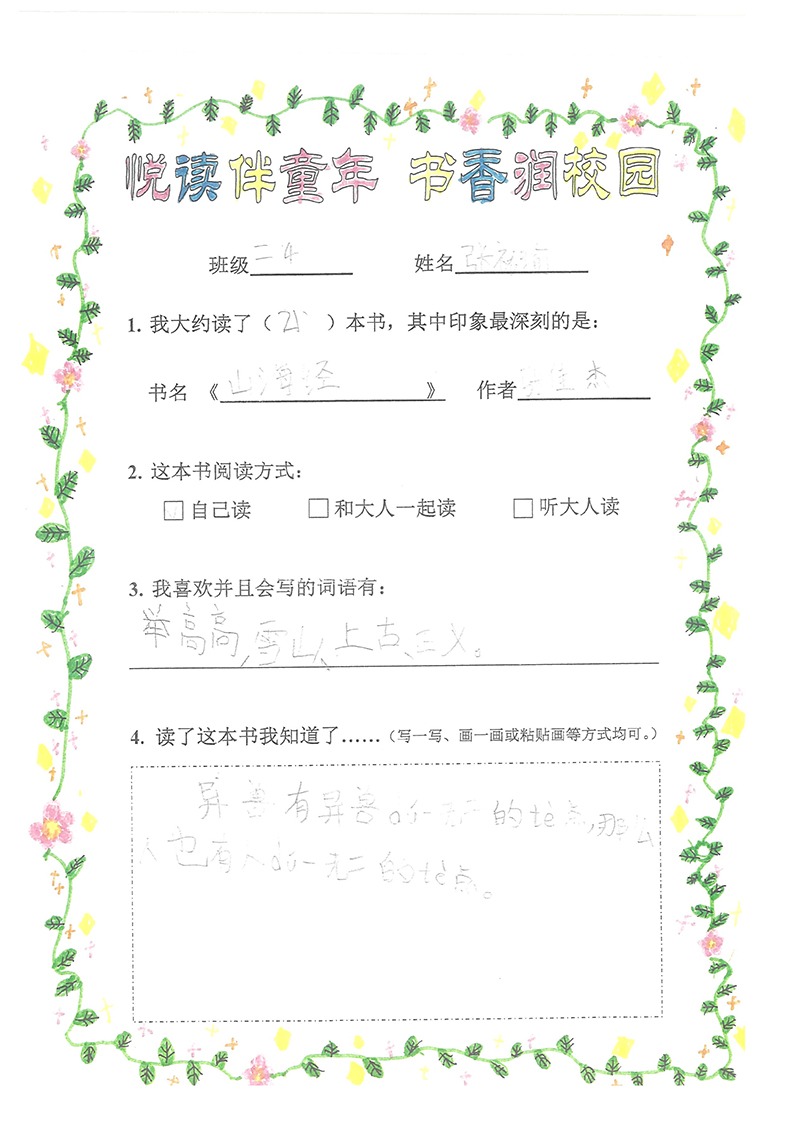 悦读伴童年 书香润校园
班级 二4 姓名 张
1. 我大约读了（ ）本书，其中印象最深刻的是：
书名 《山海经》 作者 杰
2. 这本书阅读方式：
☑自己读 □和大人一起读 □听大人读
3. 我喜欢并且会写的词语有：
举高高，雪山、上古、三义。
4. 读了这本书我知道了……（写一写、画一画或粘贴画等方式均可。）
异兽有异兽的一无二的优点，那么
人也有人的一无二的优点。